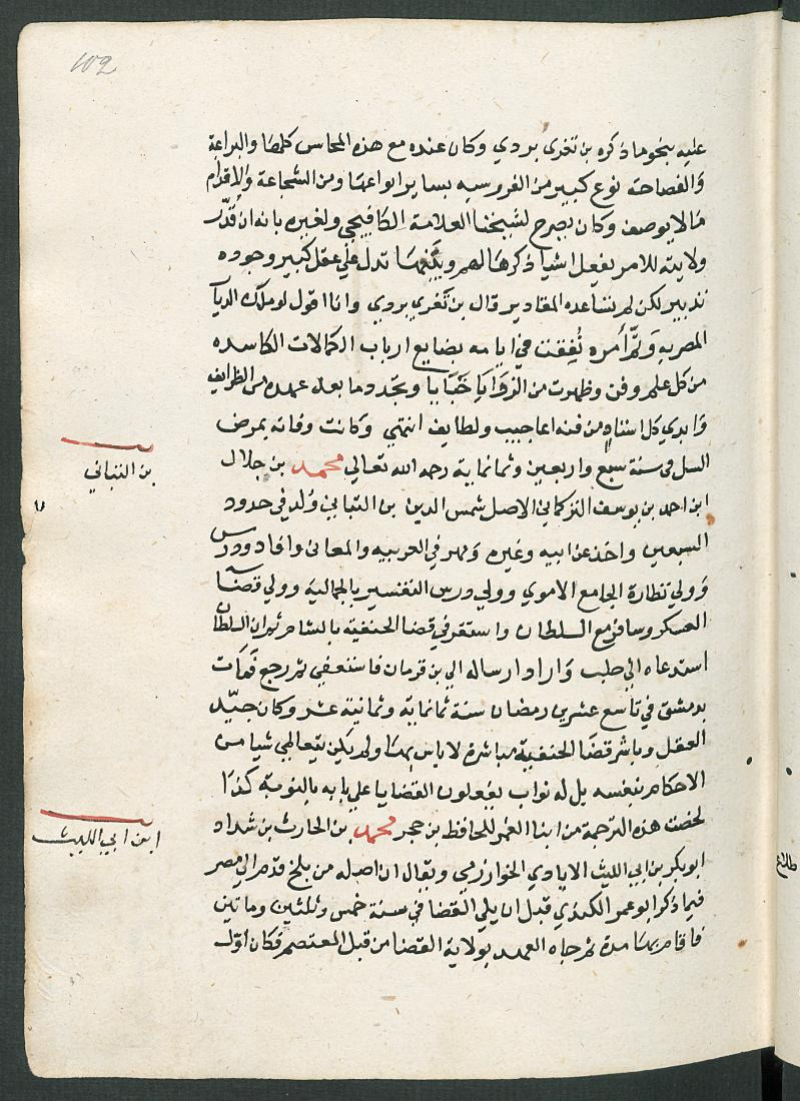 102
عليه بنحو ما ذكره بن تغرى بردي وكان عنده مع هذه المحاسن كلها والبراعة
والفصاحة نوع كبير من الفروسيه بساير انواعها ومن الشجاعة والاقدام
مالا يوصف وكان يصرح لشيخنا العلامة الكافيجي ولغيره بانه ان قُدّر
ولايته للامر يفعل اشيا ذكرها لهم وبثها تدل علي عقل كبير وجوده
تدبير لكن لم تساعده المقادير قال بن تغري بردي وانا اقول لو ملك الديا
المصريه وتمّ أمره نُفِقت في ايامه بضايع ارباب الكمالات الكاسده
من كل علم وفن وظهرت من الزوَايَا خَبَايا وتجدد ما بعد عهده من الظرايف
وابدي كل استاد من فنه اعاجيب ولطايف انتهي وكانت وفاته بمرض
السل في سنة سبع واربعين وثمانماية رحمه الله تعالي محمد بن جلال
بن التباني
ابن احمد بن يوسف التركماني الاصل شمس الدين بن التباني وُلد في حدود
السبعين واخذ عن ابيه وغيره ومهر في العربيه والمعاني وافاد ودرس
وَولي نظارة الجامع الاموي وولي درس التفسير بالجمالية وولي قضآ
العسكر وسافر مع السلطان واستقر في قضا الحنفية بالشام ثم ان السلطان
استدعاه الي حلب وَاراد ارساله الي بن قرمان فاستعفي ثم رجع فمات
بدمشق في تاسع عشرين رمضان سنة ثمانماية وثمانية عشر وكان جيّد
العقل وباشر قضَا الحنفية مباشرة لا باس بهَا ولم يكن يتعاطي شيا من
الاحكام بنفسه بل له نواب يفعلون القضايا علي بابه بالنوبة كذَا
لخصت هذه الترجمة من ابنا الغمر للحافظ بن حجر محمد بن الحارث بن شداد
ابن ابي الليث
ابو بكر بن ابي الليث الايادي الخوارزمي ويقال ان اصله من بلخ قدم الي مصر
فيما ذكر ابو عمر الكندي قبل ان يلي القضا في سنة خمس وثلثين وماتين
فاقام بهَا مدة ثم جاه العهد بولاية القضا من قبل المعتصم فكان اوّل